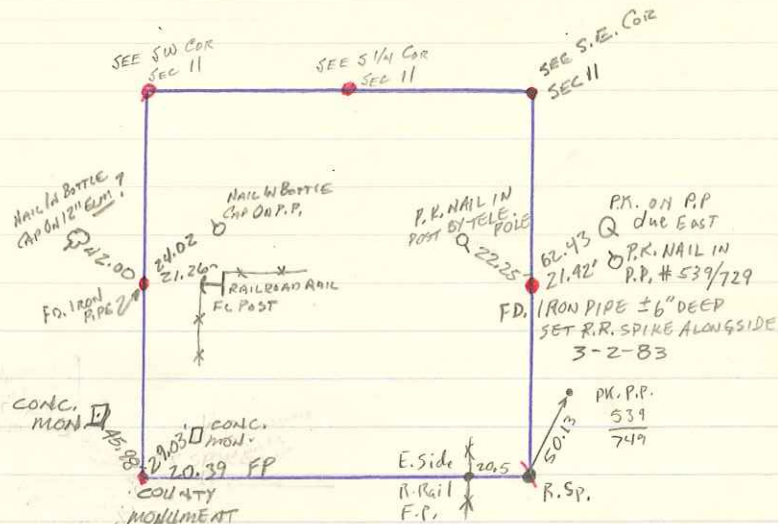 SEE SW COR
SEC 11
SEE S 1/4 COR
SEC 11
SEE S.E. COR
SEC 11
NAIL IN BOTTLE
CAP ON 12" ELM ?
42.00
NAIL IN BOTTLE
CAP ON P.P.
24.02
21.26
RAILROAD RAIL
FC POST
FD. IRON
PIPE
P.K. NAIL IN
POST BY TELE.
POLE
22.25
62.43
P.K. ON P.P
due East
21.42'
P.K. NAIL IN
P.P. # 539/729
FD. IRON PIPE ±6" DEEP
SET R.R. SPIKE ALONGSIDE
3-2-83
CONC.
MON.
45.98
29.03'
CONC.
MON.
20.39 FP
COUNTY
MONUMENT
E. Side
R.Rail
F.P.
20.5
R.Sp.
50.13
PK. P.P.
539
749